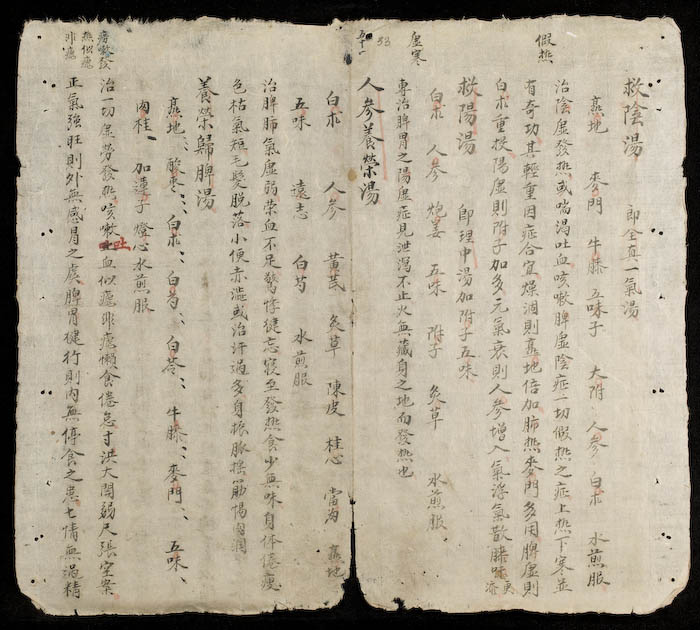 假熱
救陰湯 即全真一氣湯
熟地 麥門 牛膝 五味子 大附 人參 白朮 水煎服
治陰虛發熱或喘渴吐血咳嗽脾虛陰症一切假熱之症上熱下寒並
有奇功其輕重因症合宜燥涸則熟地倍加肺熱麥門多用脾虛則
白朮重投陽虛則附子加多元氣衰則人參增入氣浮氣散膝味更
虛寒
救陽湯 即理中湯加附子五味
白朮 人參 炮姜 五味 附子 炙草 水煎服
專治脾胃之陽虛症見泄瀉不止火無藏身之地而發熱也
33
五十一
人參養榮湯
白朮 人參 黃芪 炙草 陳皮 桂心 當歸 熟地
五味 遠志 白芍 水煎服
治脾肺氣虛弱榮血不足驚悸健忘寢至發熱食少無味身体倦瘦
色枯氣短毛髮脫落小便赤澁或治汗過多身振脈搖筋惕肉瞤
養榮歸脾湯
熟地 酸棗 白朮 白芍 白苓 牛膝 麥門 五味
肉桂 加蓮子燈心水煎服
治一切虛勞發熱咳嗽吐血似瘧非瘧懶食倦怠寸洪大関弱尺張空案
正氣強旺則外無感冒之虞脾胃健行則內無停食之患七情無過精
勞嗽發
熱似瘧
非瘧